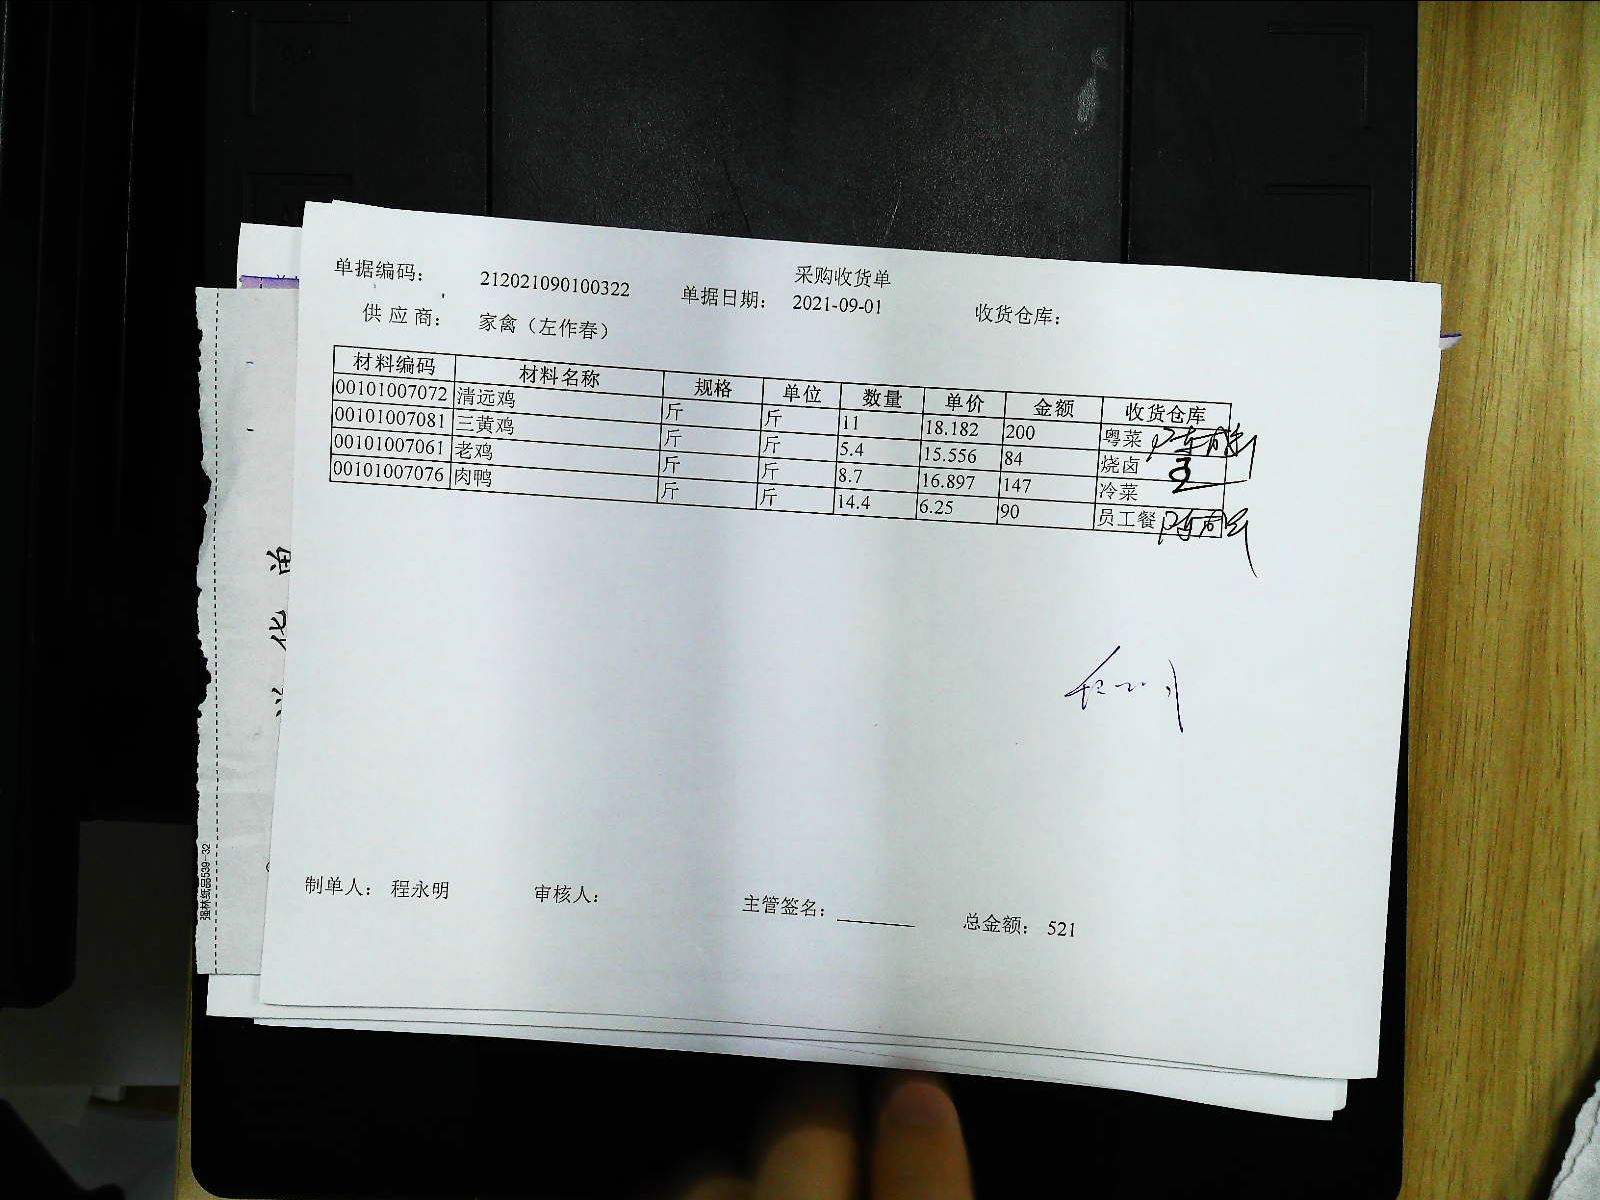 采购收货单
单据编码： 212021090100322 单据日期： 2021-09-01 收货仓库：
供应商： 家禽（左作春）
材料编码 材料名称 规格 单位 数量 单价 金额 收货仓库
00101007072 清远鸡 斤 斤 11 18.182 200 粤菜
00101007081 三黄鸡 斤 斤 5.4 15.556 84 烧卤
00101007061 老鸡 斤 斤 8.7 16.897 147 冷菜
00101007076 肉鸭 斤 斤 14.4 6.25 90 员工餐
制单人： 程永明 审核人： 主管签名： 总金额： 521
强林纸品539-32